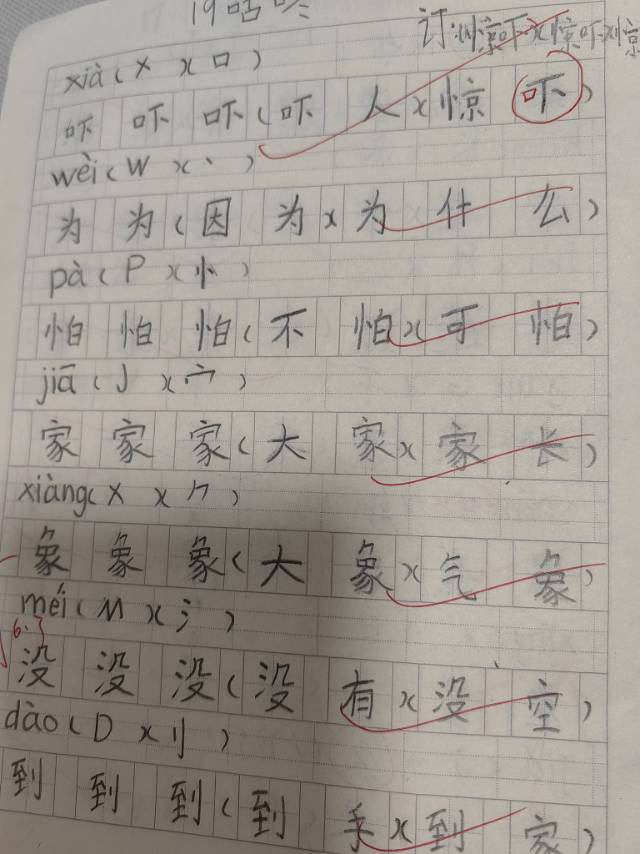 19 咕咚
订:(惊吓)(惊吓)(惊
xià(X)(口)
吓 吓 吓(吓人)(惊吓)
wèi(W)(丶)
为 为(因为)(为什么)
pà(P)(忄)
怕 怕 怕(不怕)(可怕)
jiā(J)(宀)
家 家 家(大家)(家长)
xiàng(X)(⺈)
象 象 象(大象)(气象)
méi(M)(氵)
6.3
没 没 没(没有)(没空)
dào(D)(刂)
到 到 到(到手)(到家)